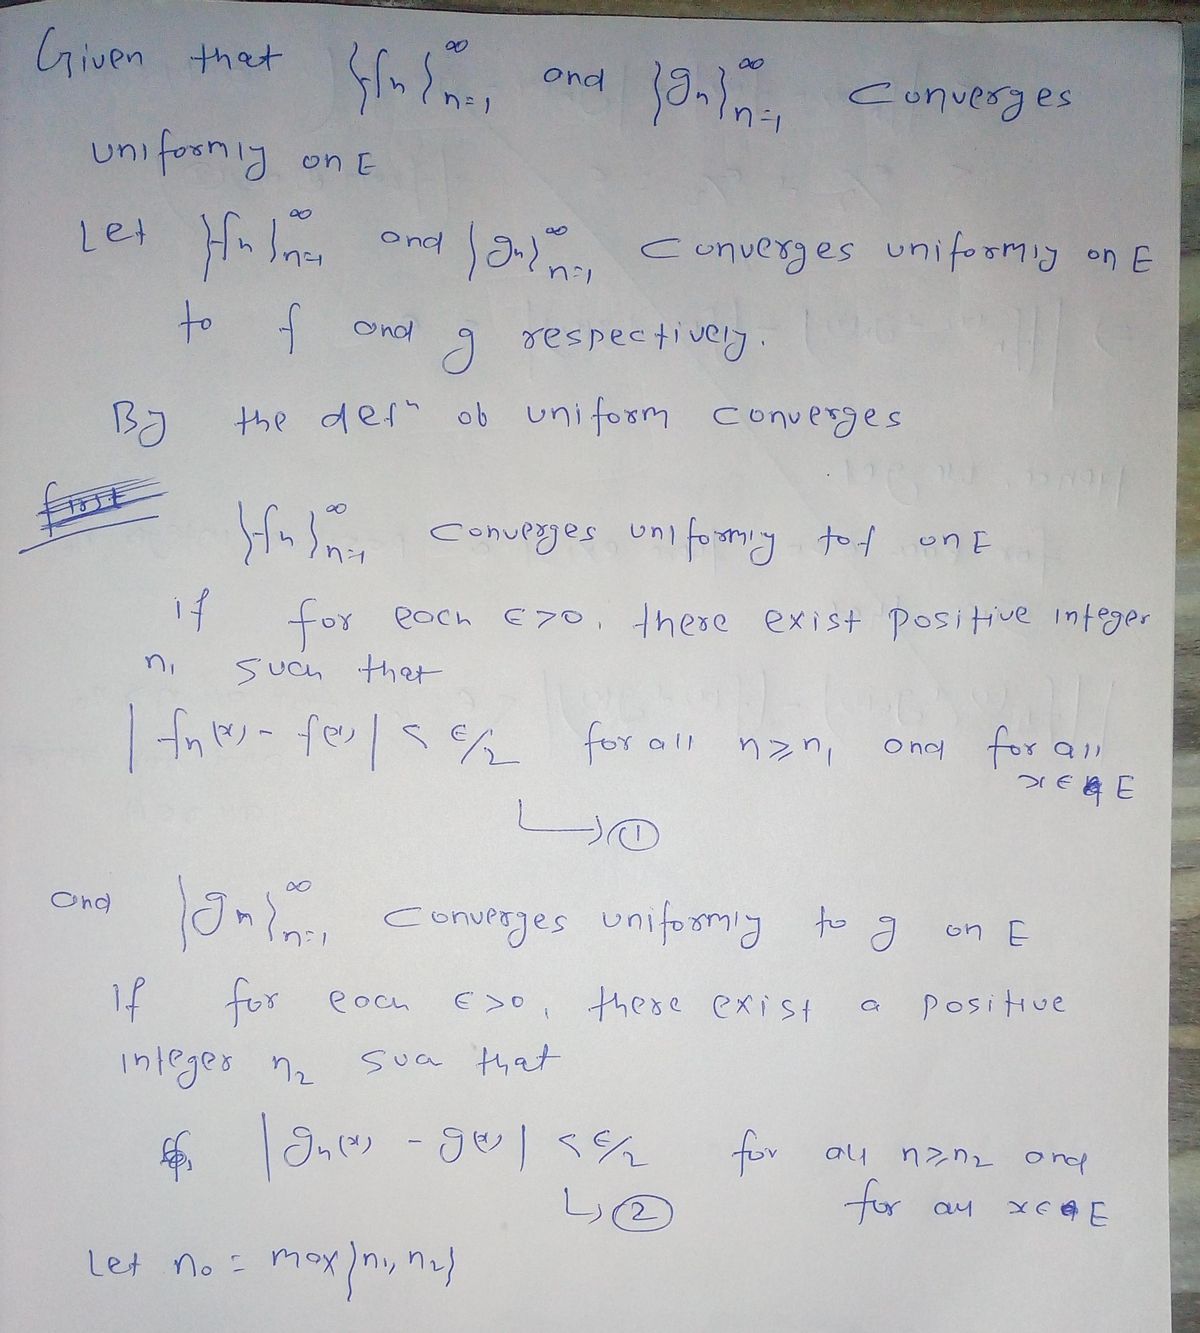 Given that {fn}∞n=1 and {gn}∞n=1 converges
uniformly on E
Let {fn}∞n=1 and {gn}∞n=1 converges uniformly on E
to f and g respectively.
By the defn ob uniform converges
first
{fn}∞n=1 converges uniformly to f on E
if for each ∈>0, there exist positive integer
n1 such that
|fn(x) - f(x)| < ∈/2 for all n≥n1 and for all
x∈E
↳ ①
and {gn}∞n=1 converges uniformly to g on E
If for each ∈>0, there exist a positive
integer n2 such that
|gn(x) - g(x)| < ∈/2 for all n≥n2 and
↳ ② for all x∈E
Let n0 = max{n1, n2}